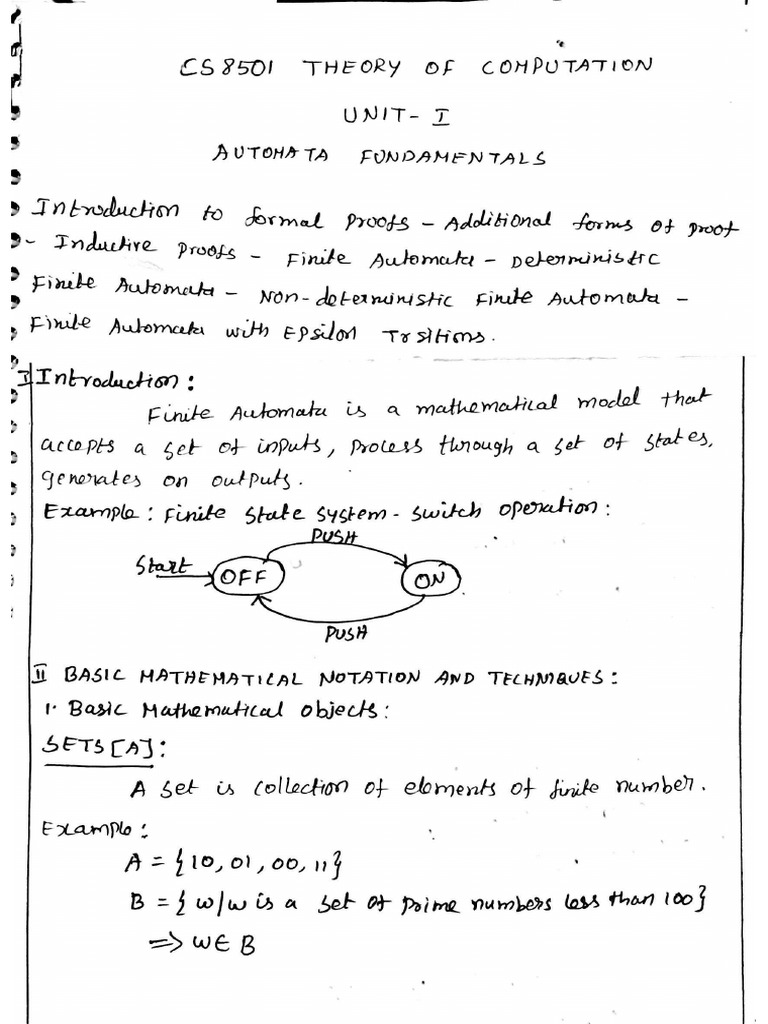 CS8501 THEORY OF COMPUTATION
UNIT- I
AUTOMATA FUNDAMENTALS
Introduction to formal Proofs - Additional forms of proof
- Inductive proofs - Finite Automata - Deterministic
Finite Automata - Non-deterministic Finite Automata -
Finite Automata with Epsilon Trsitions.
I Introduction:
Finite Automata is a mathematical model that
accepts a set of inputs, process through a set of states,
generates on outputs.
Example: Finite State System - Switch operation:
PUSH
Start OFF ON
PUSH
II BASIC MATHEMATICAL NOTATION AND TECHNIQUES:
1. Basic Mathematical objects:
SETS[A]:
A Set is collection of elements of finite number.
Example:
A = {10, 01, 00, 11}
B = { w/w is a set of prime numbers less than 100}
=> W∈ B